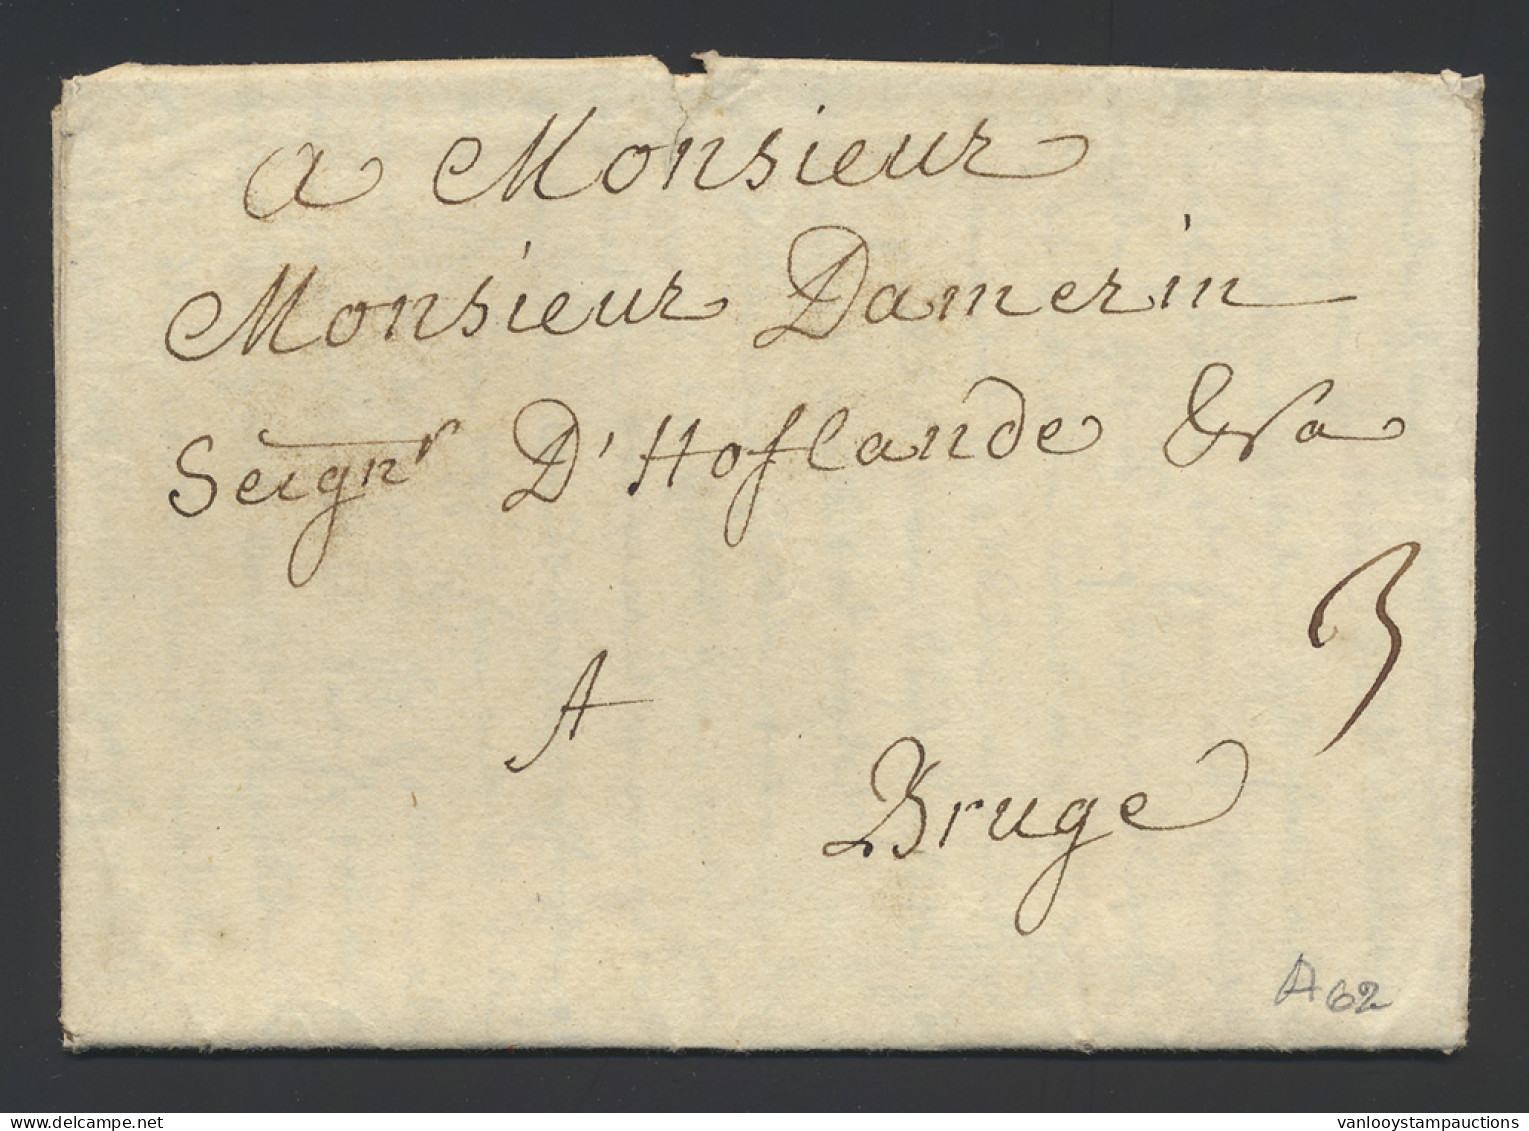 a Monsieur
Monsieur Damerin
Seignr D'Hoflande &ra
3
A
Bruge
A62
delcampe.net
vanlooystampauctions